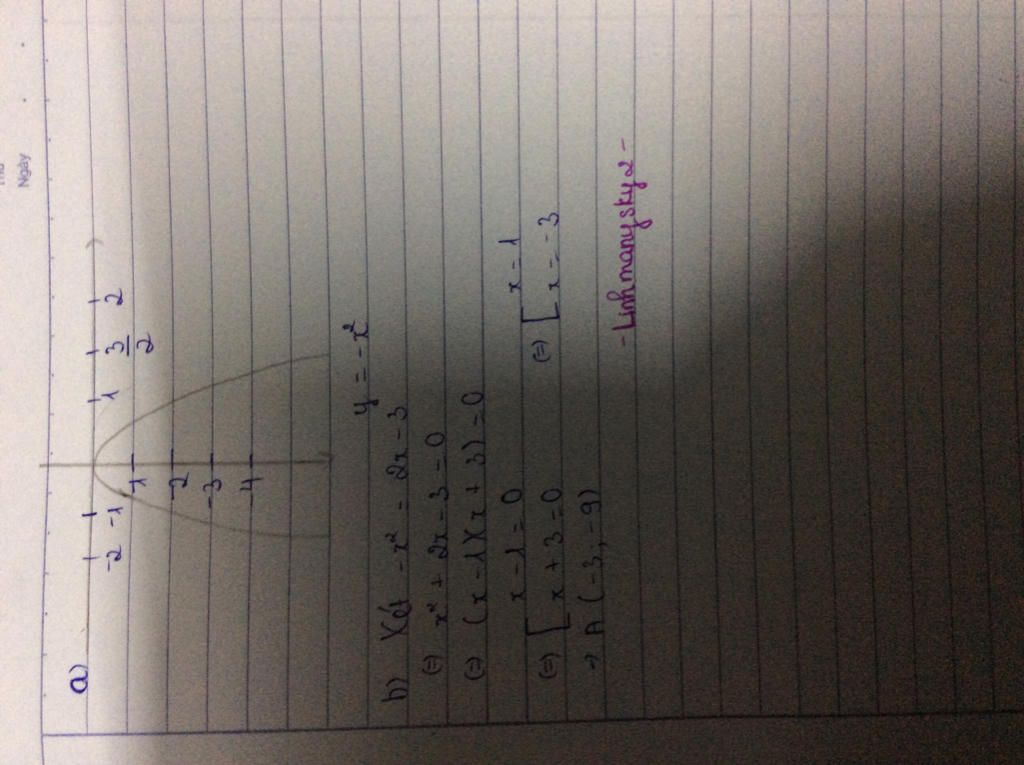 Thứ
Ngày
a)
-2 -1 1 3/2 2
-1
-2
-3
-4
y = -x²
b) Xét -x² = 2x - 3
(=) x² + 2x - 3 = 0
(=) (x - 1)(x + 3) = 0
(=) [ x - 1 = 0 (=) [ x = 1
x + 3 = 0 x = -3
→ A (-3; -9)
- Linhmanysky2 -